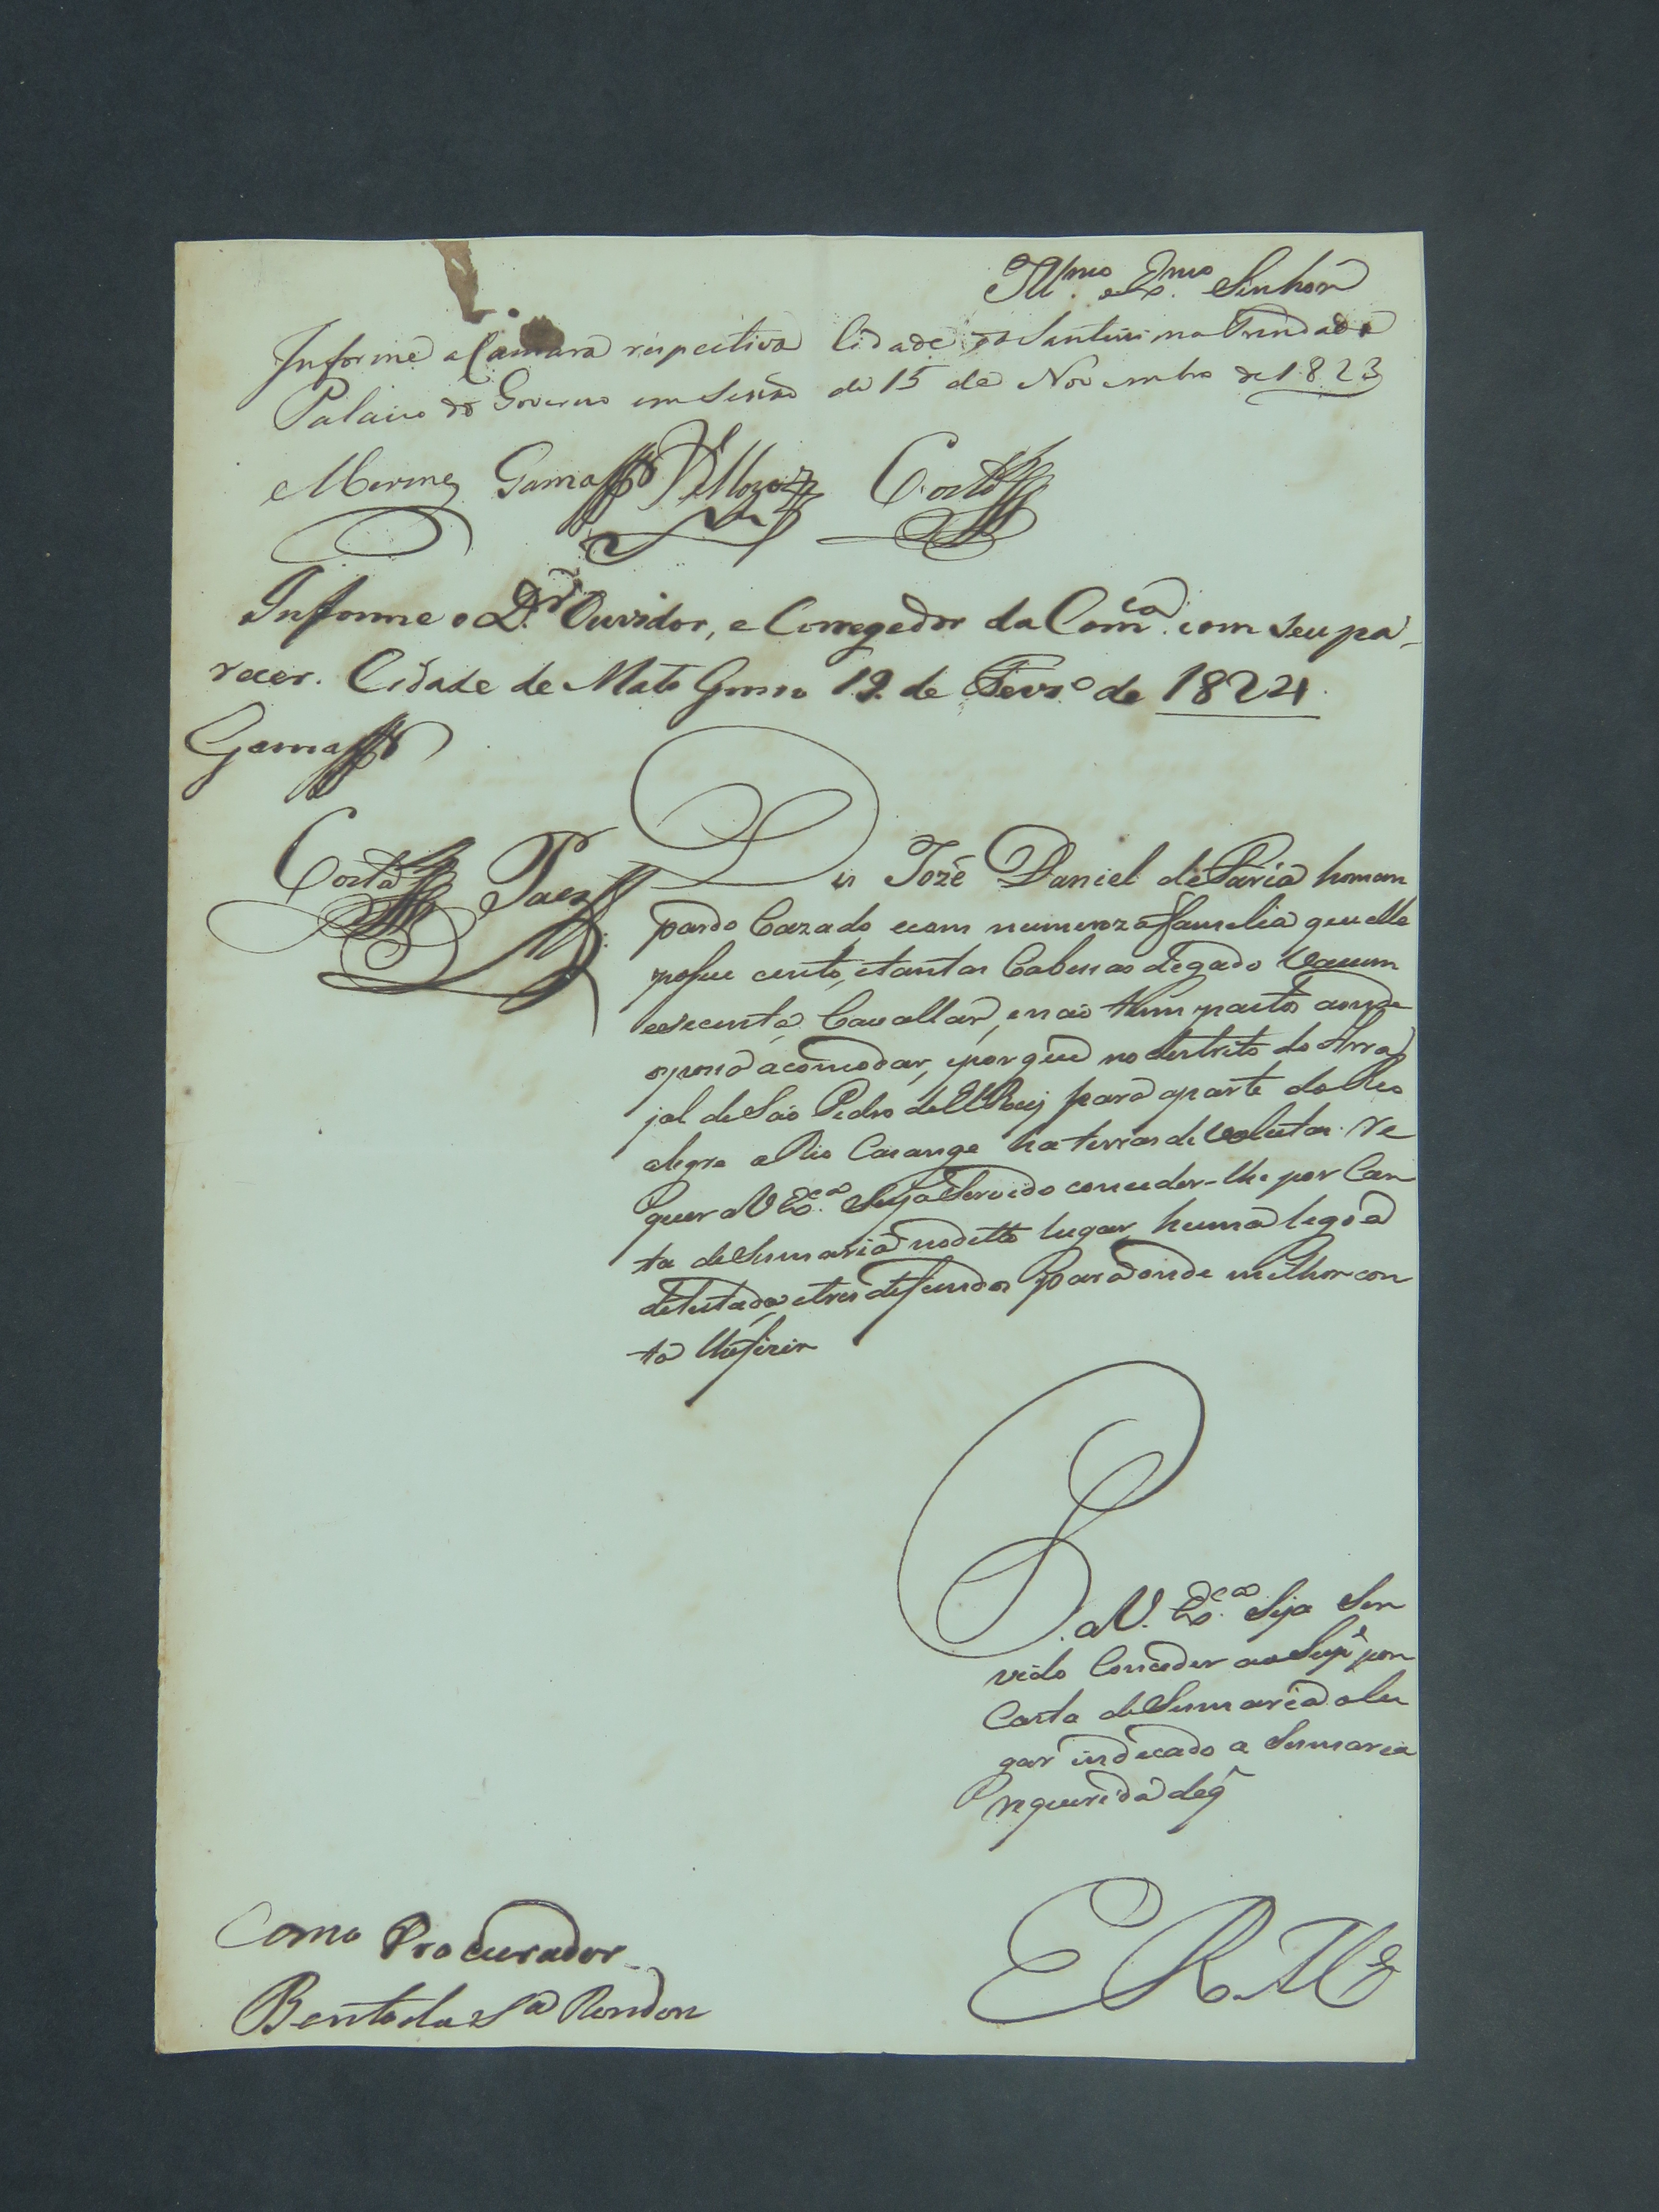 Ill.mo e Ex.mo Senhor
Informe a Camara respectiva Cidade da Santissima Trindade
Palacio do Governo em Sessão de 15 de Novembro de 1823
Gama Vellozo Costa
Informe o D.r Ouvidor, e Corregedor da Com.ca com seu pa-
recer. Cidade de Mato Grosso 19 de Fevr.o de 1824
Gama
Costa Paes
Jozé Daniel de Faria homem
pardo Cazado, e com numeroza familia que elle
posue cento, e tantas Cabessas de gado Vacum
e secenta Cavallar, e não tem pasto aonde
o possa acomodar, e por que no destrito do Arra
jal de São Pedro del Rey para aparte do Rio
alegre a Rio Casange ha terras devolutas. Re
quer a V Ex.ca Seja Servido conceder-lhe por Car
ta de Sesmaria no ditto lugar huma legoa
de testada, e tres de fundos para donde milhor con
ta lhe fizer
P. a V. Ex.ca Seja Ser
vido Conceder ao Sup.e por
Carta de Sesmaria o lu
gar indecado a Sesmaria
requerida de q
E R M.ce
Como Procurador
Bento da S.a Rondon